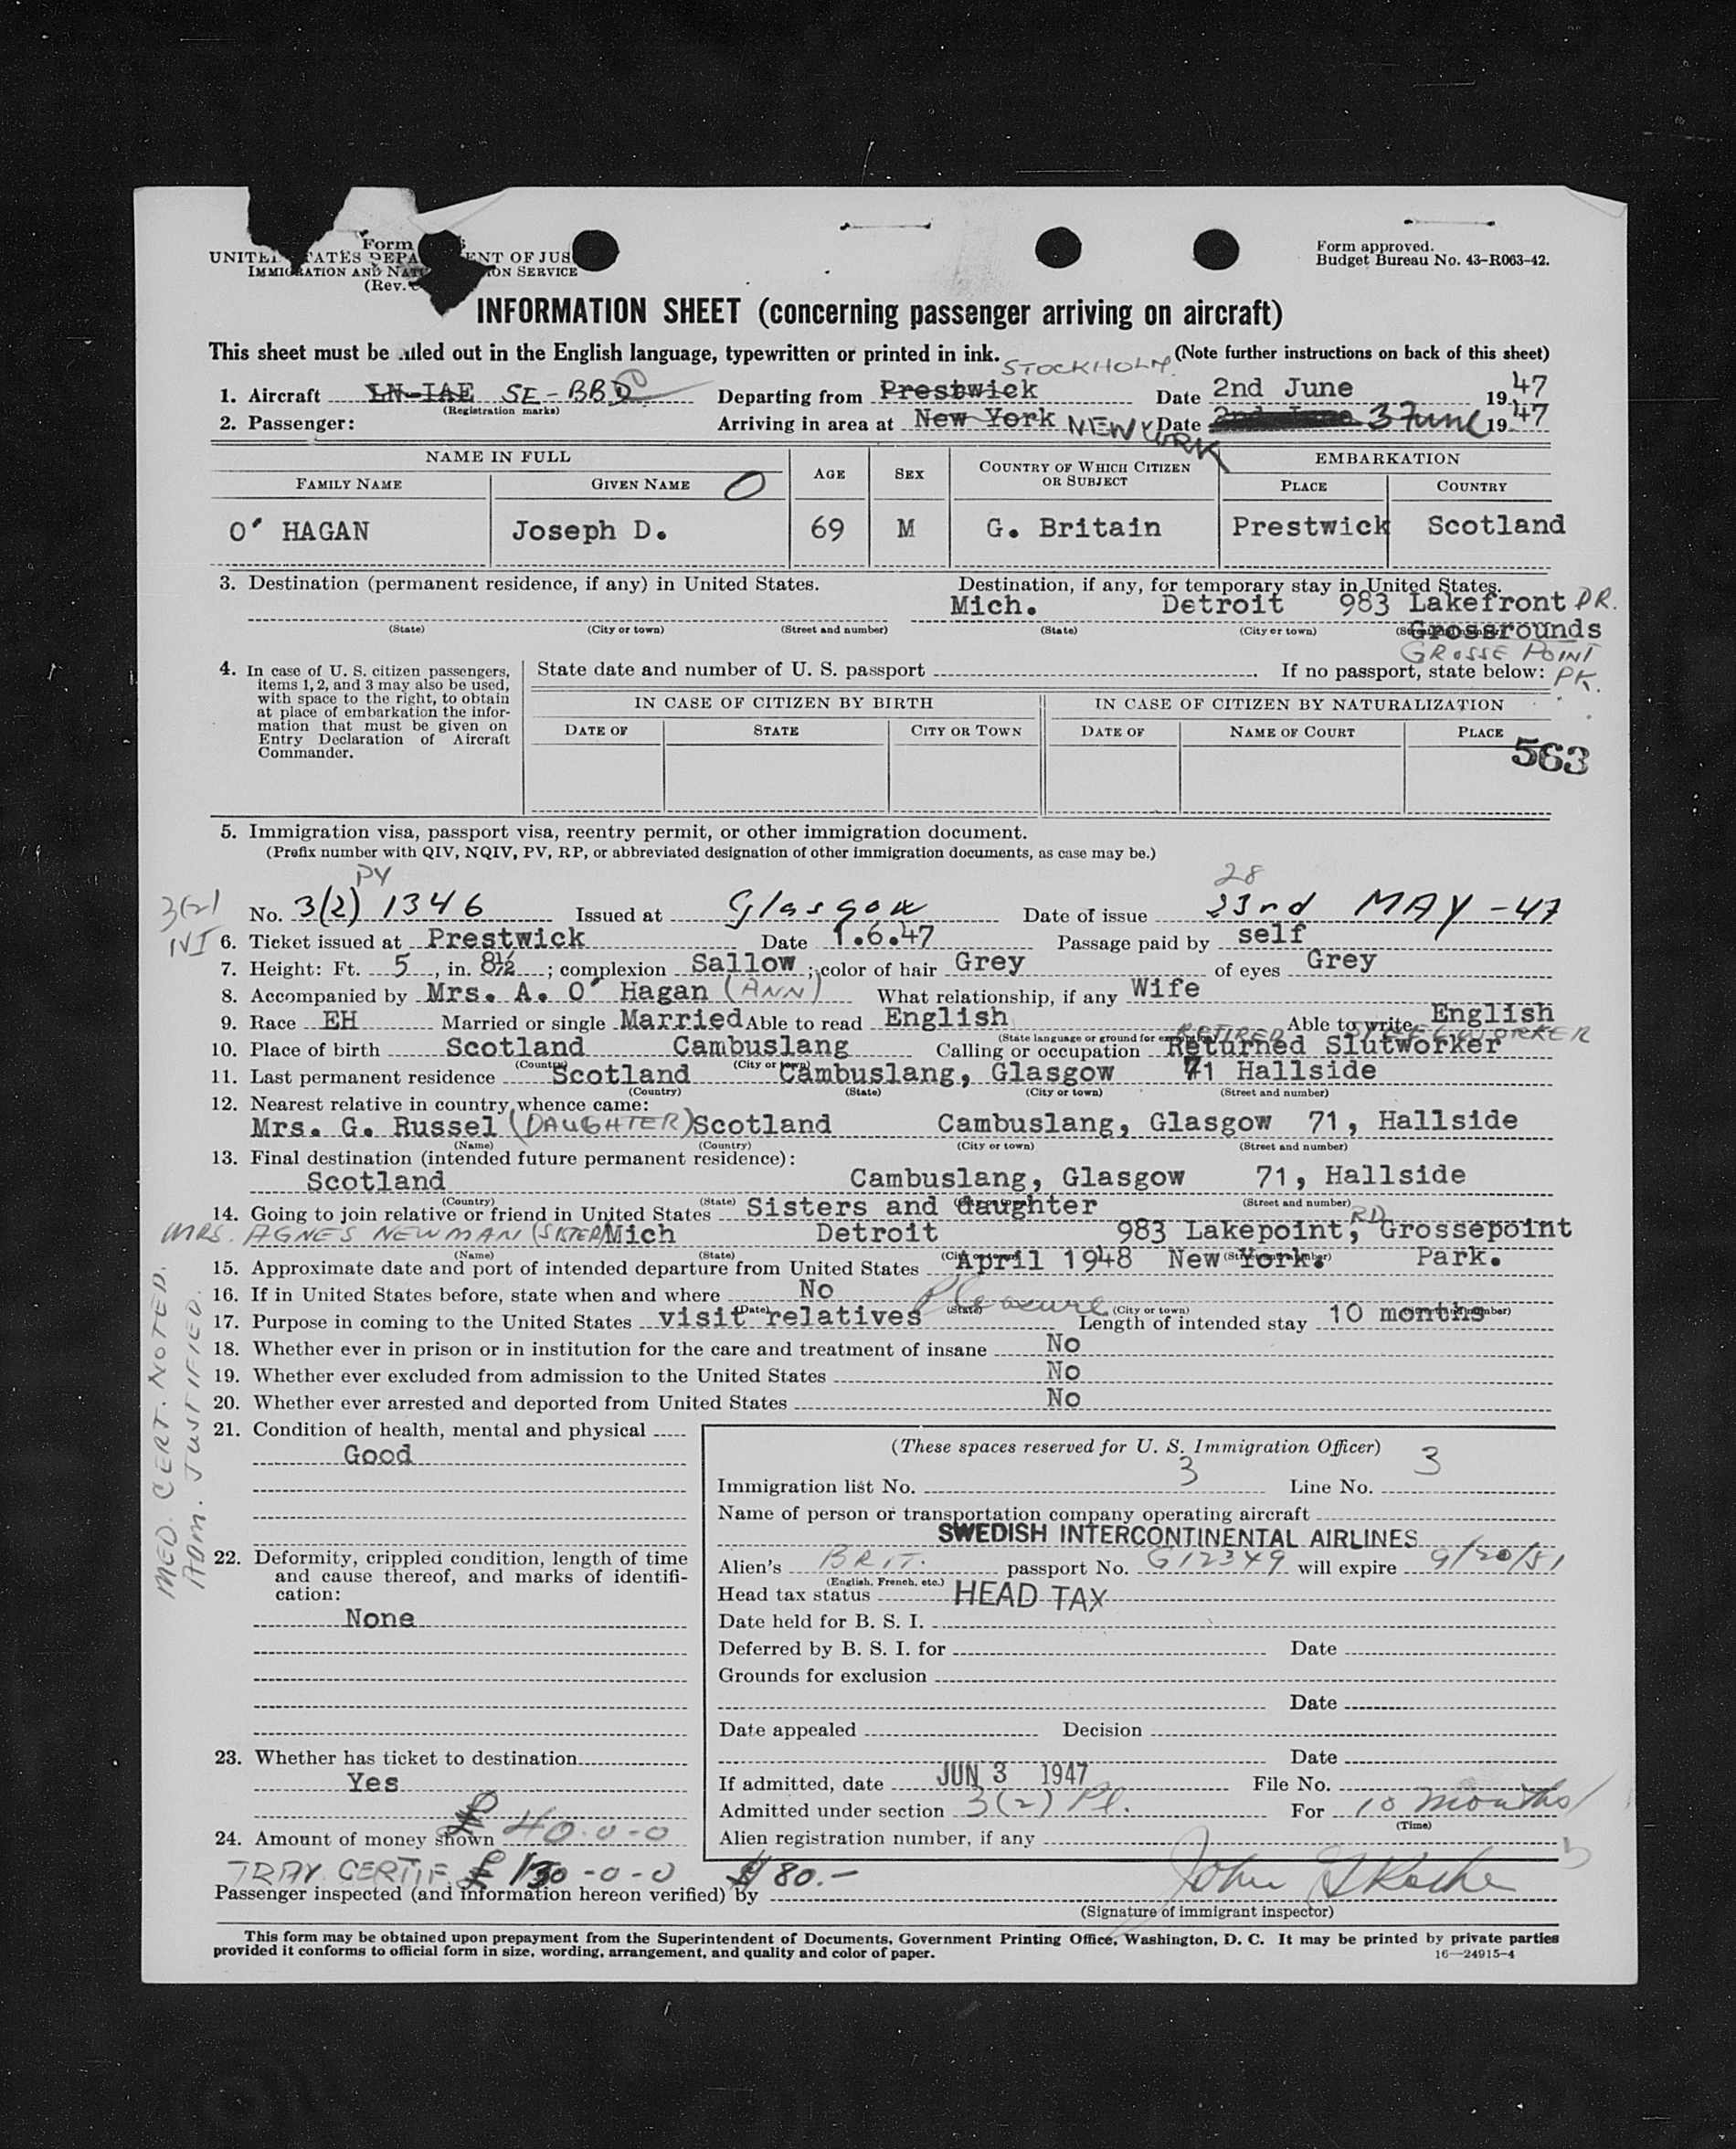 Form
UNITED STATES DEPA ENT OF JUS
IMMIGRATION AND NATU ION SERVICE
(Rev.
Form approved.
Budget Bureau No. 43-R063-42.
INFORMATION SHEET (concerning passenger arriving on aircraft)
This sheet must be filled out in the English language, typewritten or printed in ink. (Note further instructions on back of this sheet)
STOCKHOLM
1. Aircraft LN-IAE SE-BBD Departing from Prestwick Date 2nd June 1947
(Registration marks)
2. Passenger: Arriving in area at New York NEW YORK Date 2nd June 3 June 1947
NAME IN FULL AGE SEX COUNTRY OF WHICH CITIZEN OR SUBJECT EMBARKATION
FAMILY NAME GIVEN NAME O PLACE COUNTRY
O' HAGAN Joseph D. 69 M G. Britain Prestwick Scotland
3. Destination (permanent residence, if any) in United States. Destination, if any, for temporary stay in United States.
Mich. Detroit 983 Lakefront DR.
(State) (City or town) (Street and number) (State) (City or town) (Street and number) Grossrounds
GROSSE POINT
PK.
4. In case of U. S. citizen passengers, items 1, 2, and 3 may also be used, with space to the right, to obtain at place of embarkation the information that must be given on Entry Declaration of Aircraft Commander.
State date and number of U. S. passport . If no passport, state below:
IN CASE OF CITIZEN BY BIRTH IN CASE OF CITIZEN BY NATURALIZATION
DATE OF STATE CITY OR TOWN DATE OF NAME OF COURT PLACE
563
5. Immigration visa, passport visa, reentry permit, or other immigration document.
(Prefix number with QIV, NQIV, PV, RP, or abbreviated designation of other immigration documents, as case may be.)
PV 28
3(2) No. 3(2) 1346 Issued at Glasgow Date of issue 23rd MAY-47
NI 6. Ticket issued at Prestwick Date 1.6.47 Passage paid by self
7. Height: Ft. 5, in. 8½; complexion Sallow; color of hair Grey of eyes Grey
8. Accompanied by Mrs. A. O' Hagan (ANN) What relationship, if any Wife
9. Race EH Married or single Married Able to read English Able to write English
(State language or ground for exemption) RETIRED STEELWORKER
10. Place of birth Scotland Cambuslang Calling or occupation Returned Slutworker
(Country) (City or town)
11. Last permanent residence Scotland Cambuslang, Glasgow 71 Hallside
(Country) (State) (City or town) (Street and number)
12. Nearest relative in country whence came:
Mrs. G. Russel (DAUGHTER) Scotland Cambuslang, Glasgow 71, Hallside
(Name) (Country) (City or town) (Street and number)
13. Final destination (intended future permanent residence):
Scotland Cambuslang, Glasgow 71, Hallside
(Country) (State) (City or town) (Street and number)
14. Going to join relative or friend in United States Sisters and daughter
MRS. AGNES NEWMAN (SISTER) Mich Detroit 983 Lakepoint, RD Grossepoint
(Name) (State) (City or town) (Street and number) Park.
15. Approximate date and port of intended departure from United States April 1948 New York.
16. If in United States before, state when and where No
(Date) (State) (City or town) (Street and number)
17. Purpose in coming to the United States visit relatives Pleasure Length of intended stay 10 months
18. Whether ever in prison or in institution for the care and treatment of insane No
19. Whether ever excluded from admission to the United States No
20. Whether ever arrested and deported from United States No
MED. CERT. NOTED.
ADM. JUSTIFIED.
21. Condition of health, mental and physical
Good
22. Deformity, crippled condition, length of time and cause thereof, and marks of identification:
None
23. Whether has ticket to destination
Yes
24. Amount of money shown £ 40-0-0
TRAV. CERTIF £ 130-0-0 $ 80.-
(These spaces reserved for U. S. Immigration Officer)
Immigration list No. 3 Line No. 3
Name of person or transportation company operating aircraft
SWEDISH INTERCONTINENTAL AIRLINES
Alien's BRIT. passport No. G12349 will expire 9/20/51
(English, French, etc.)
Head tax status HEAD TAX
Date held for B. S. I.
Deferred by B. S. I. for Date
Grounds for exclusion
Date
Date appealed Decision
Date
If admitted, date JUN 3 1947 File No.
Admitted under section 3(2) Pl. For 10 months
(Time)
Alien registration number, if any
Passenger inspected (and information hereon verified) by John
(Signature of immigrant inspector)
This form may be obtained upon prepayment from the Superintendent of Documents, Government Printing Office, Washington, D. C. It may be printed by private parties
provided it conforms to official form in size, wording, arrangement, and quality and color of paper. 16—24915-4